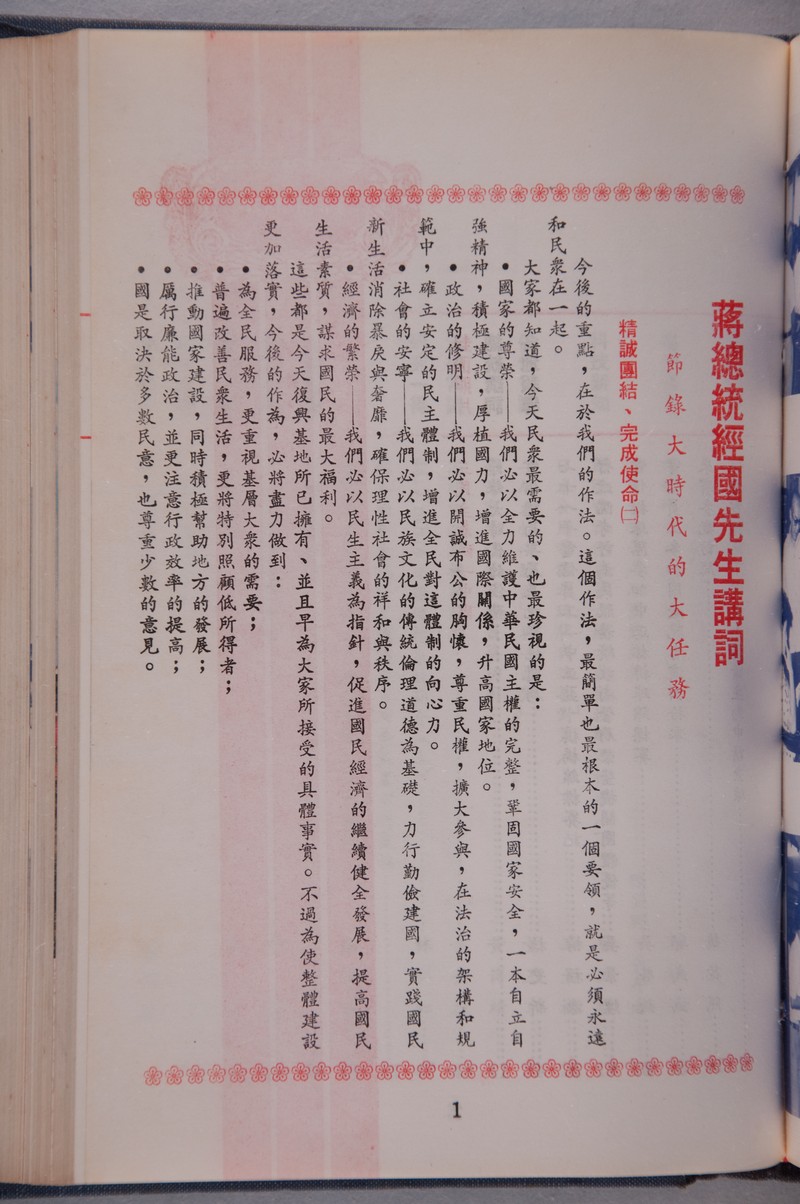 蔣總統經國先生講詞
節錄大時代的大任務
精誠團結、完成使命㈡
今後的重點，在於我們的作法。這個作法，最簡單也最根本的一個要領，就是必須永遠
和民衆在一起。
大家都知道，今天民衆最需要的、也最珍視的是：
•國家的尊榮——我們必以全力維護中華民國主權的完整，鞏固國家安全，一本自立自
強精神，積極建設，厚植國力，增進國際關係，升高國家地位。
•政治的修明——我們必以開誠布公的胸懷，尊重民權，擴大參與，在法治的架構和規
範中，確立安定的民主體制，增進全民對這體制的向心力。
•社會的安寧——我們必以民族文化的傳統倫理道德為基礎，力行勤儉建國，實踐國民
新生活消除暴戾與奢靡，確保理性社會的祥和與秩序。
•經濟的繁榮——我們必以民生主義為指針，促進國民經濟的繼續健全發展，提高國民
生活素質，謀求國民的最大福利。
這些都是今天復興基地所已擁有、並且早為大家所接受的具體事實。不過為使整體建設
更加落實，今後的作為，必將盡力做到：
•為全民服務，更重視基層大衆的需要；
•普遍改善民衆生活，更將特別照顧低所得者；
•推動國家建設，同時積極幫助地方的發展；
•厲行廉能政治，並更注意行政效率的提高；
•國是取決於多數民意，也尊重少數的意見。
1